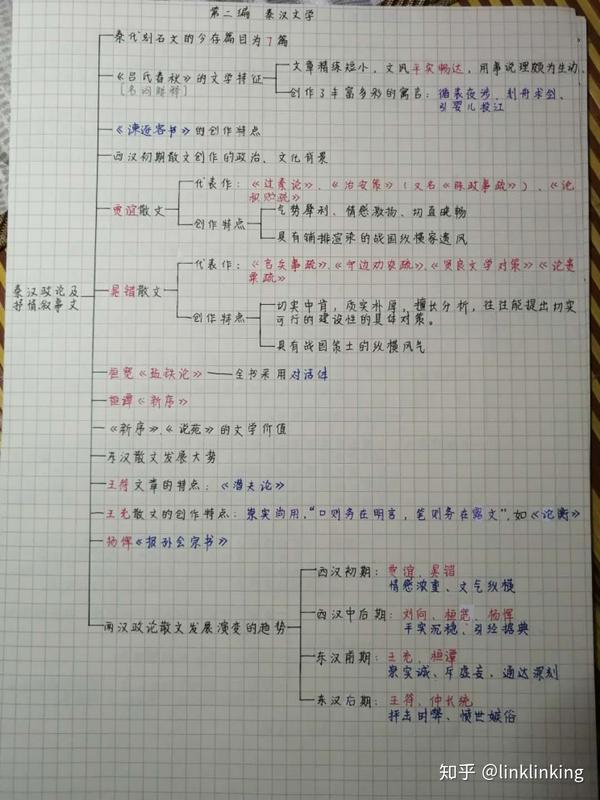 第二编 秦汉文学
秦代刻石文的今存篇目为7篇
《吕氏春秋》的文学特征
[名词解释]
文章精炼短小,文风平实畅达,用事说理颇为生动
创作了丰富多彩的寓言:循表夜涉、刻舟求剑、
引婴儿投江
《谏逐客书》的创作特点
西汉初期散文创作的政治、文化背景
贾谊散文
代表作:《过秦论》、《治安策》(又名《陈政事疏》)、《论
积贮疏》
创作特点
气势犀利、情感激扬、切直晓畅
具有铺排渲染的战国纵横家遗风
秦汉政论及
抒情叙事文
晁错散文
代表作:《言兵事疏》、《守边劝农疏》、《贤良文学对策》《论贵
粟疏》
创作特点
切实中肯,质实朴厚,擅长分析,往往能提出切实
可行的建设性的具体对策。
具有战国策士的纵横风气
桓宽《盐铁论》
全书采用对话体
桓谭《新序》
《新序》、《说苑》的文学价值
东汉散文发展大势
王符文章的特点:《潜夫论》
王充散文的创作特点:崇实尚用,“口则务在明言,笔则务在露文”,如《论衡》
杨恽《报孙会宗书》
两汉政论散文发展演变的趋势
西汉初期:贾谊、晁错
情感浓重、文气纵横
西汉中后期:刘向、桓宽、杨恽
平实沉稳、引经据典
东汉前期:王充、桓谭
崇实诚、斥虚妄、通达深刻
东汉后期:王符、仲长统
抨击时弊、愤世嫉俗
知乎 @linklinking